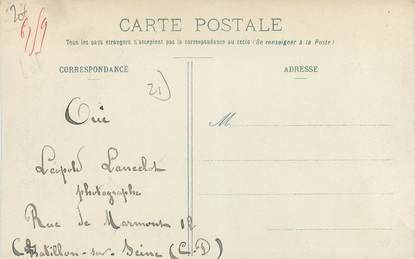 20f
67/9
CARTE POSTALE
Tous les pays étrangers n'acceptent pas la correspondance au recto (Se renseigner à la Poste)
CORRESPONDANCE
ADRESSE
21)
Oui
M
Léopold Lancelot
photographe
Rue de Marmont 12
Chatillon-sur-Seine (C.D)